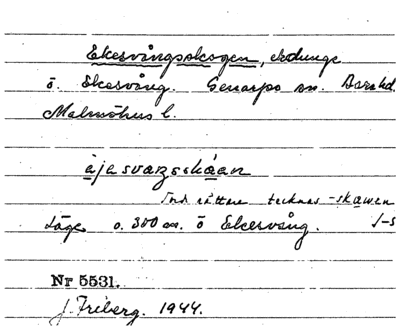 Ekesvångsskogen, skogsdunge
ö. Ekesvång. Genarps sn. Bara hd.
Malmöhus l.
äjasvaŋsskåan
Torde rättare tecknas -skawen
Läge o. 300 m. ö Ekesvång. I-S
Nr 5531.
J. Friberg. 1944.